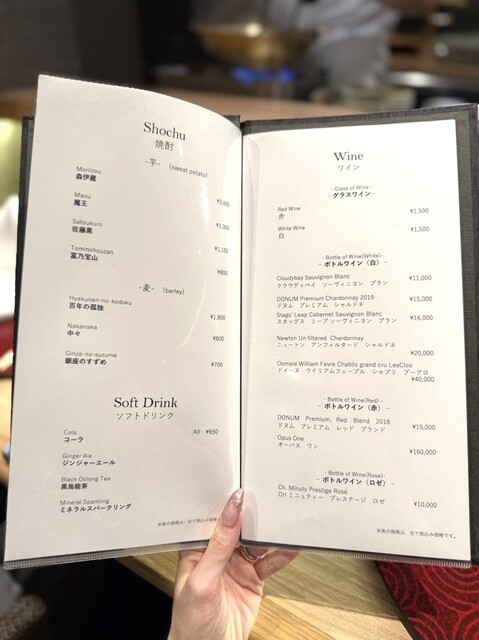 Shochu
焼酎
-芋- (sweet potato)
Moriizou
森伊蔵
¥3,000
Maou
魔王
¥1,300
Satoukuro
佐藤黒
¥1,100
Tominohouzan
富乃宝山
¥800
-麦- (barley)
Hyakunen-no-kodoku
百年の孤独
¥1,800
Nakanaka
中々
¥800
Ginza-no-suzume
銀座のすずめ
¥700
Soft Drink
ソフトドリンク
Cola All ¥650
コーラ
Ginger Ale
ジンジャーエール
Black Oolong Tea
黒烏龍茶
Mineral Sparkling
ミネラルスパークリング
※表の価格は、全て税込み価格です。
Wine
ワイン
- Glass of Wine -
- グラスワイン -
Red Wine
赤 ¥1,500
White Wine
白 ¥1,500
- Bottle of Wine(White)-
- ボトルワイン（白）-
Cloudybay Sauvignon Blanc
クラウディベイ ソーヴィニヨン ブラン ¥11,000
DONUM Premium Chardonnay 2019
ドヌム プレミアム シャルドネ ¥15,000
Stags' Leap Cabernet Sauvignon Blanc
スタッグス リープ ソーヴィニヨン ブラン ¥16,000
Newton Un filtered Chardonnay
ニュートン アンフィルタード シャルドネ
¥20,000
Domaie William Fevre Chablis grand cru LesClos
ドメーヌ ウイリアムフェーブル シャブリ ブーグロ
¥40,000
- Bottle of Wine(Red) -
- ボトルワイン（赤）-
DONUM Premium, Red Blend 2018
ドヌム プレミアム レッド ブランド ¥15,000
Opus One
オーパス ワン
¥160,000
- Bottle of Wine(Rose)-
- ボトルワイン（ロゼ）-
Ch. Minuty Prestige Rosé
CH ミニュティー プレステージ ロゼ ¥10,000
※表の価格は、全て税込み価格です。